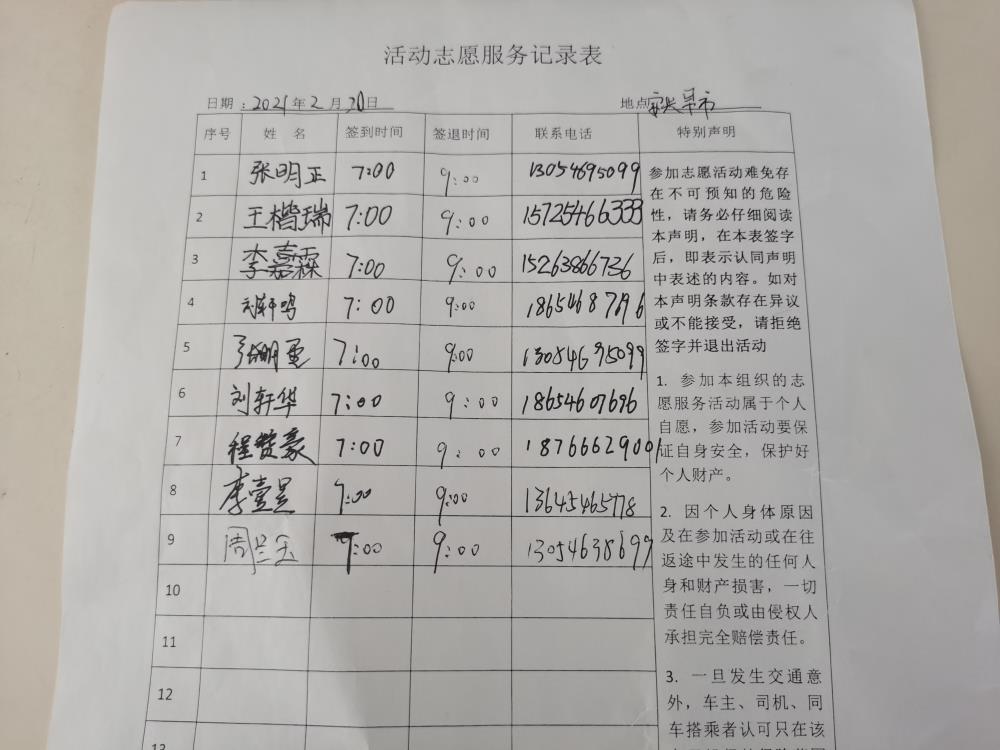 活动志愿服务记录表
日期：2021年2月20日 地点 早市
序号 姓 名 签到时间 签退时间 联系电话 特别声明
1 张明正 7:00 9:00 13054695099
2 王楷瑞 7:00 9:00 15725466333
3 李嘉霖 7:00 9:00 15263866736
4 刘轩鸣 7:00 9:00 18654687696
5 7:00 9:00 13054695099
6 刘轩华 7:00 9:00 18654607696
7 程赞豪 7:00 9:00 18766629001
8 李壹昊 7:00 9:00 13645465778
9 周兰玉 7:00 9:00 13054638699
10
11
12
13
参加志愿活动难免存
在不可预知的危险
性，请务必仔细阅读
本声明，在本表签字
后，即表示认同声明
中表述的内容。如对
本声明条款存在异议
或不能接受，请拒绝
签字并退出活动
1. 参加本组织的志
愿服务活动属于个人
自愿，参加活动要保
证自身安全，保护好
个人财产。
2. 因个人身体原因
及在参加活动或在往
返途中发生的任何人
身和财产损害，一切
责任自负或由侵权人
承担完全赔偿责任。
3. 一旦发生交通意
外，车主、司机、同
车搭乘者认可只在该